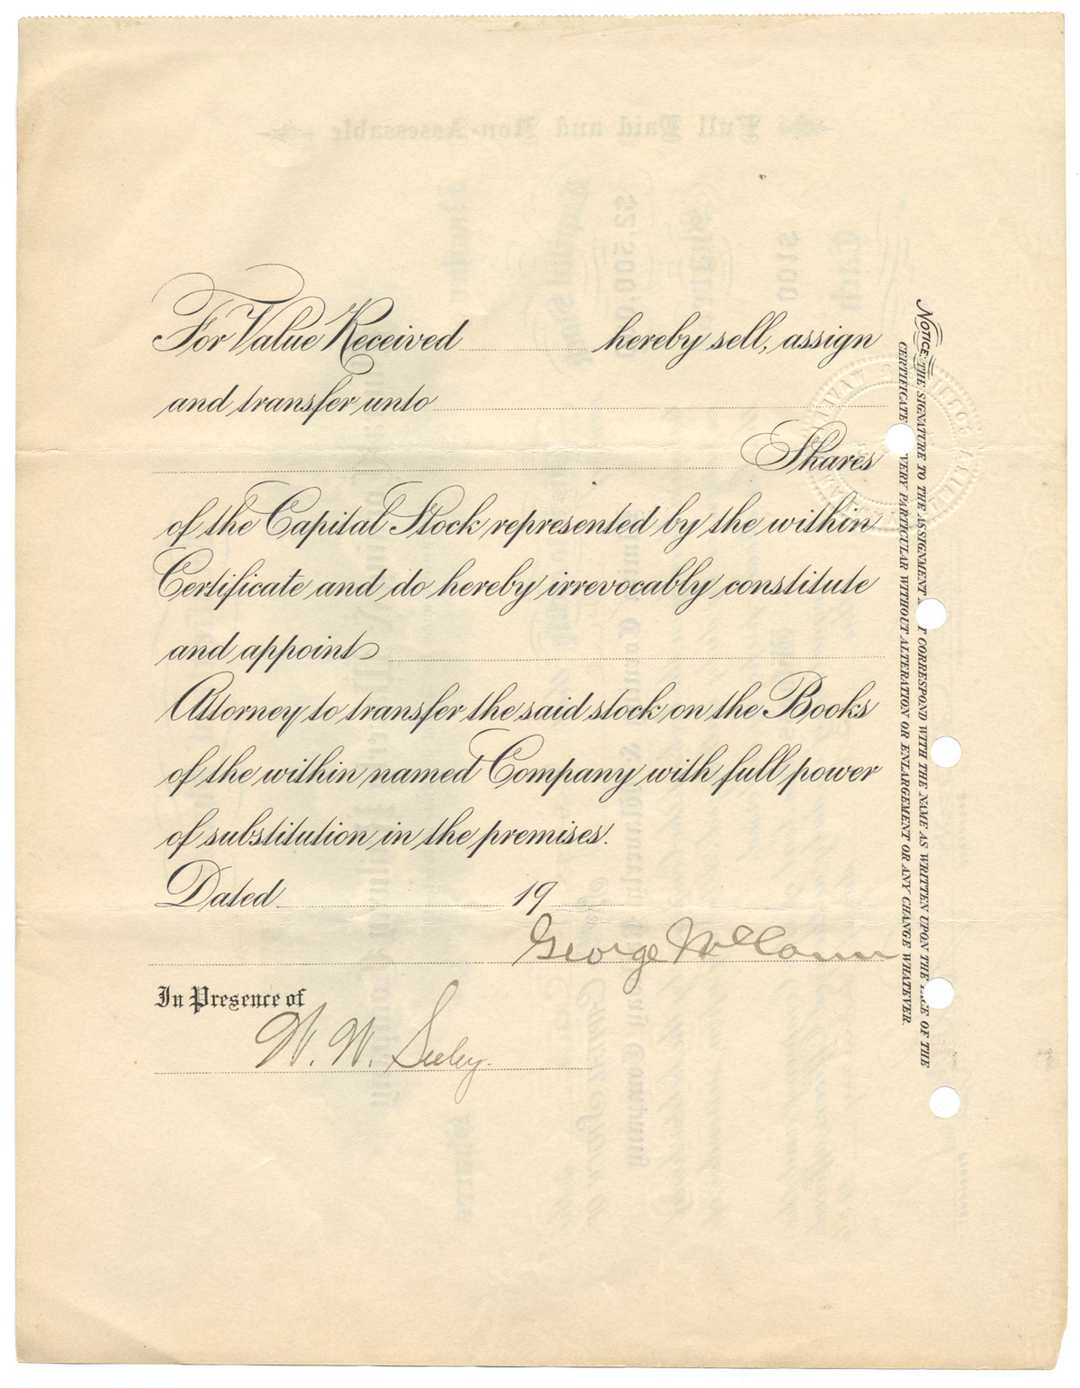 For Value Received hereby sell, assign
and transfer unto
Shares
of the Capital Stock represented by the within
Certificate and do hereby irrevocably constitute
and appoint
Attorney to transfer the said stock on the Books
of the within named Company with full power
of substitution in the premises.
Dated 19
George McCann
In Presence of
W. W. Seeley.
NOTICE: THE SIGNATURE TO THE ASSIGNMENT CORRESPOND WITH THE NAME AS WRITTEN UPON THE OF THE
CERTIFICATE VERY PARTICULAR WITHOUT ALTERATION OR ENLARGEMENT OR ANY CHANGE WHATEVER.
Full Paid and Non-Assessable